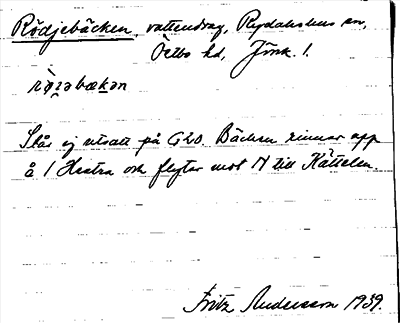 Rödjebäcken, vattendrag, Rydaholms sn,
Östbo hd, Jönk. l.
rö̀ʒəbækən
Står ej utsatt på G20. Bäcken rinner upp
å / Hestra och flyter mot N till Kättelen.
Fritz Andersson 1939.